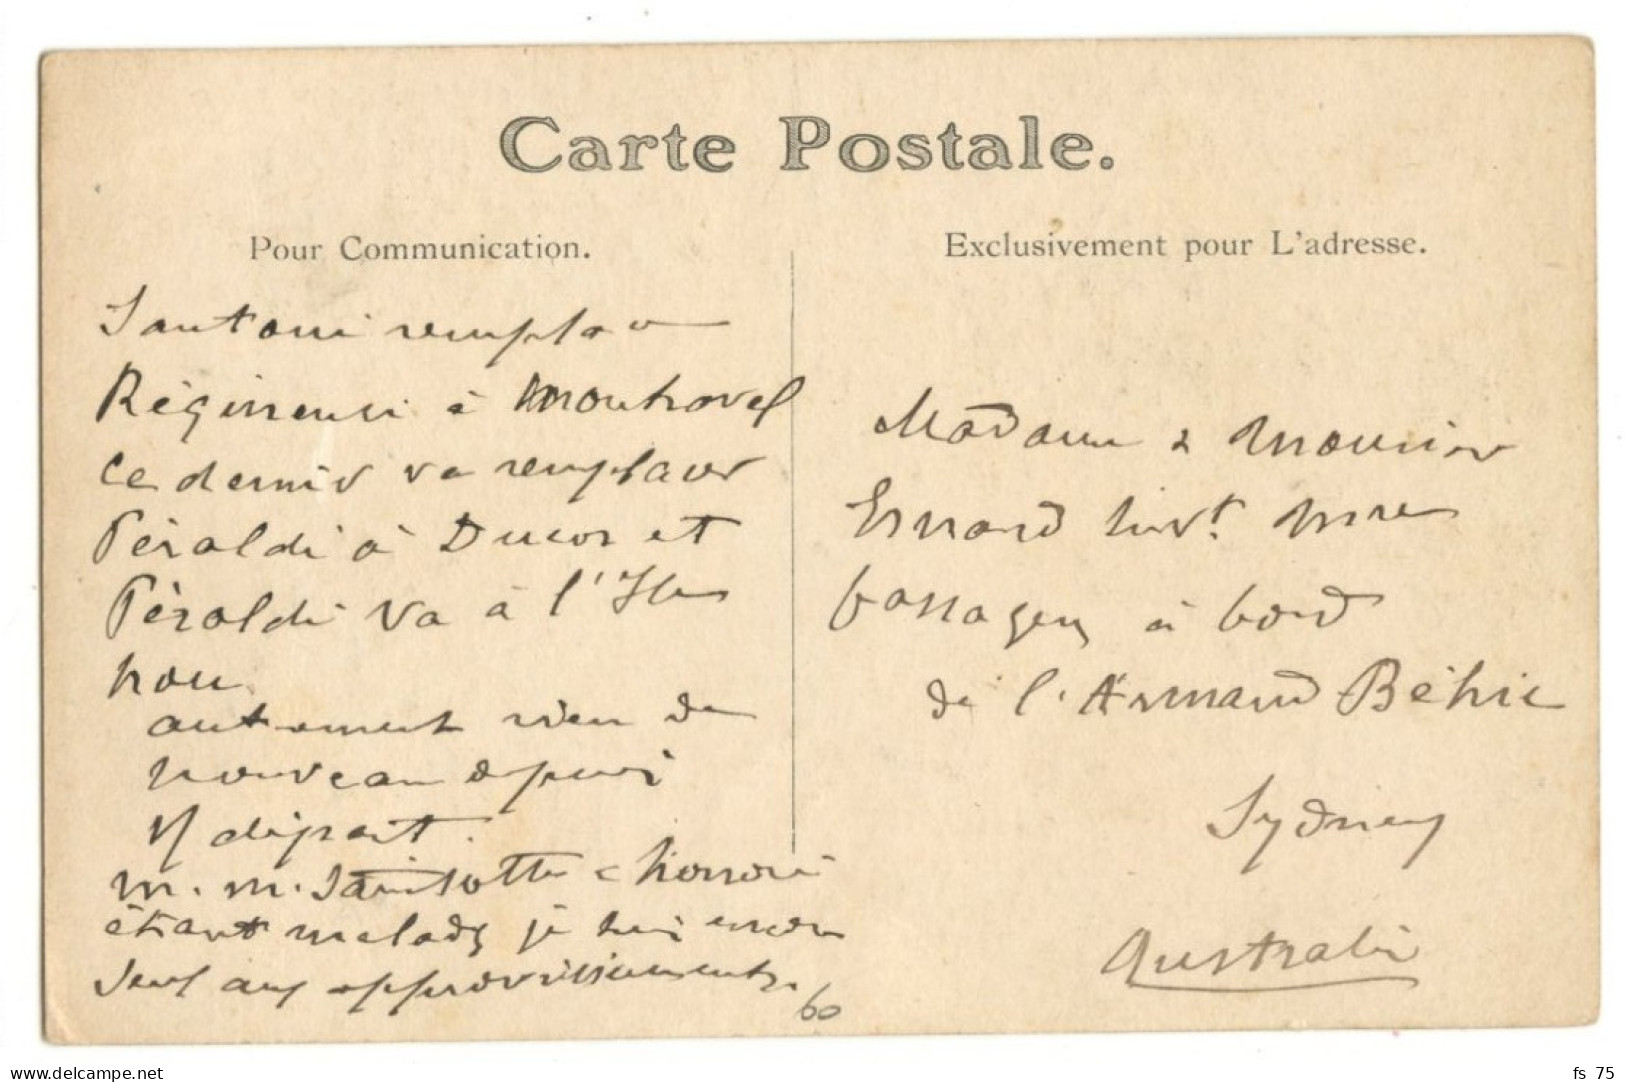 Carte Postale.
Pour Communication.
Exclusivement pour L'adresse.
Santoni remplace
à Montravel
ce dernier va remplacer
Péraldi à Ducos et
Péraldi va à l'Ile
nou
autrement rien de
nouveau depuis
V/ départ.
M. M. Saintotte & Honoré
étant malades je suis encore
seul aux approvisionnements.
60
Madame & Monsieur
Esnard
passagers à bord
de l'Armand Béhic
Sydney
Australie
www.delcampe.net
fs 75